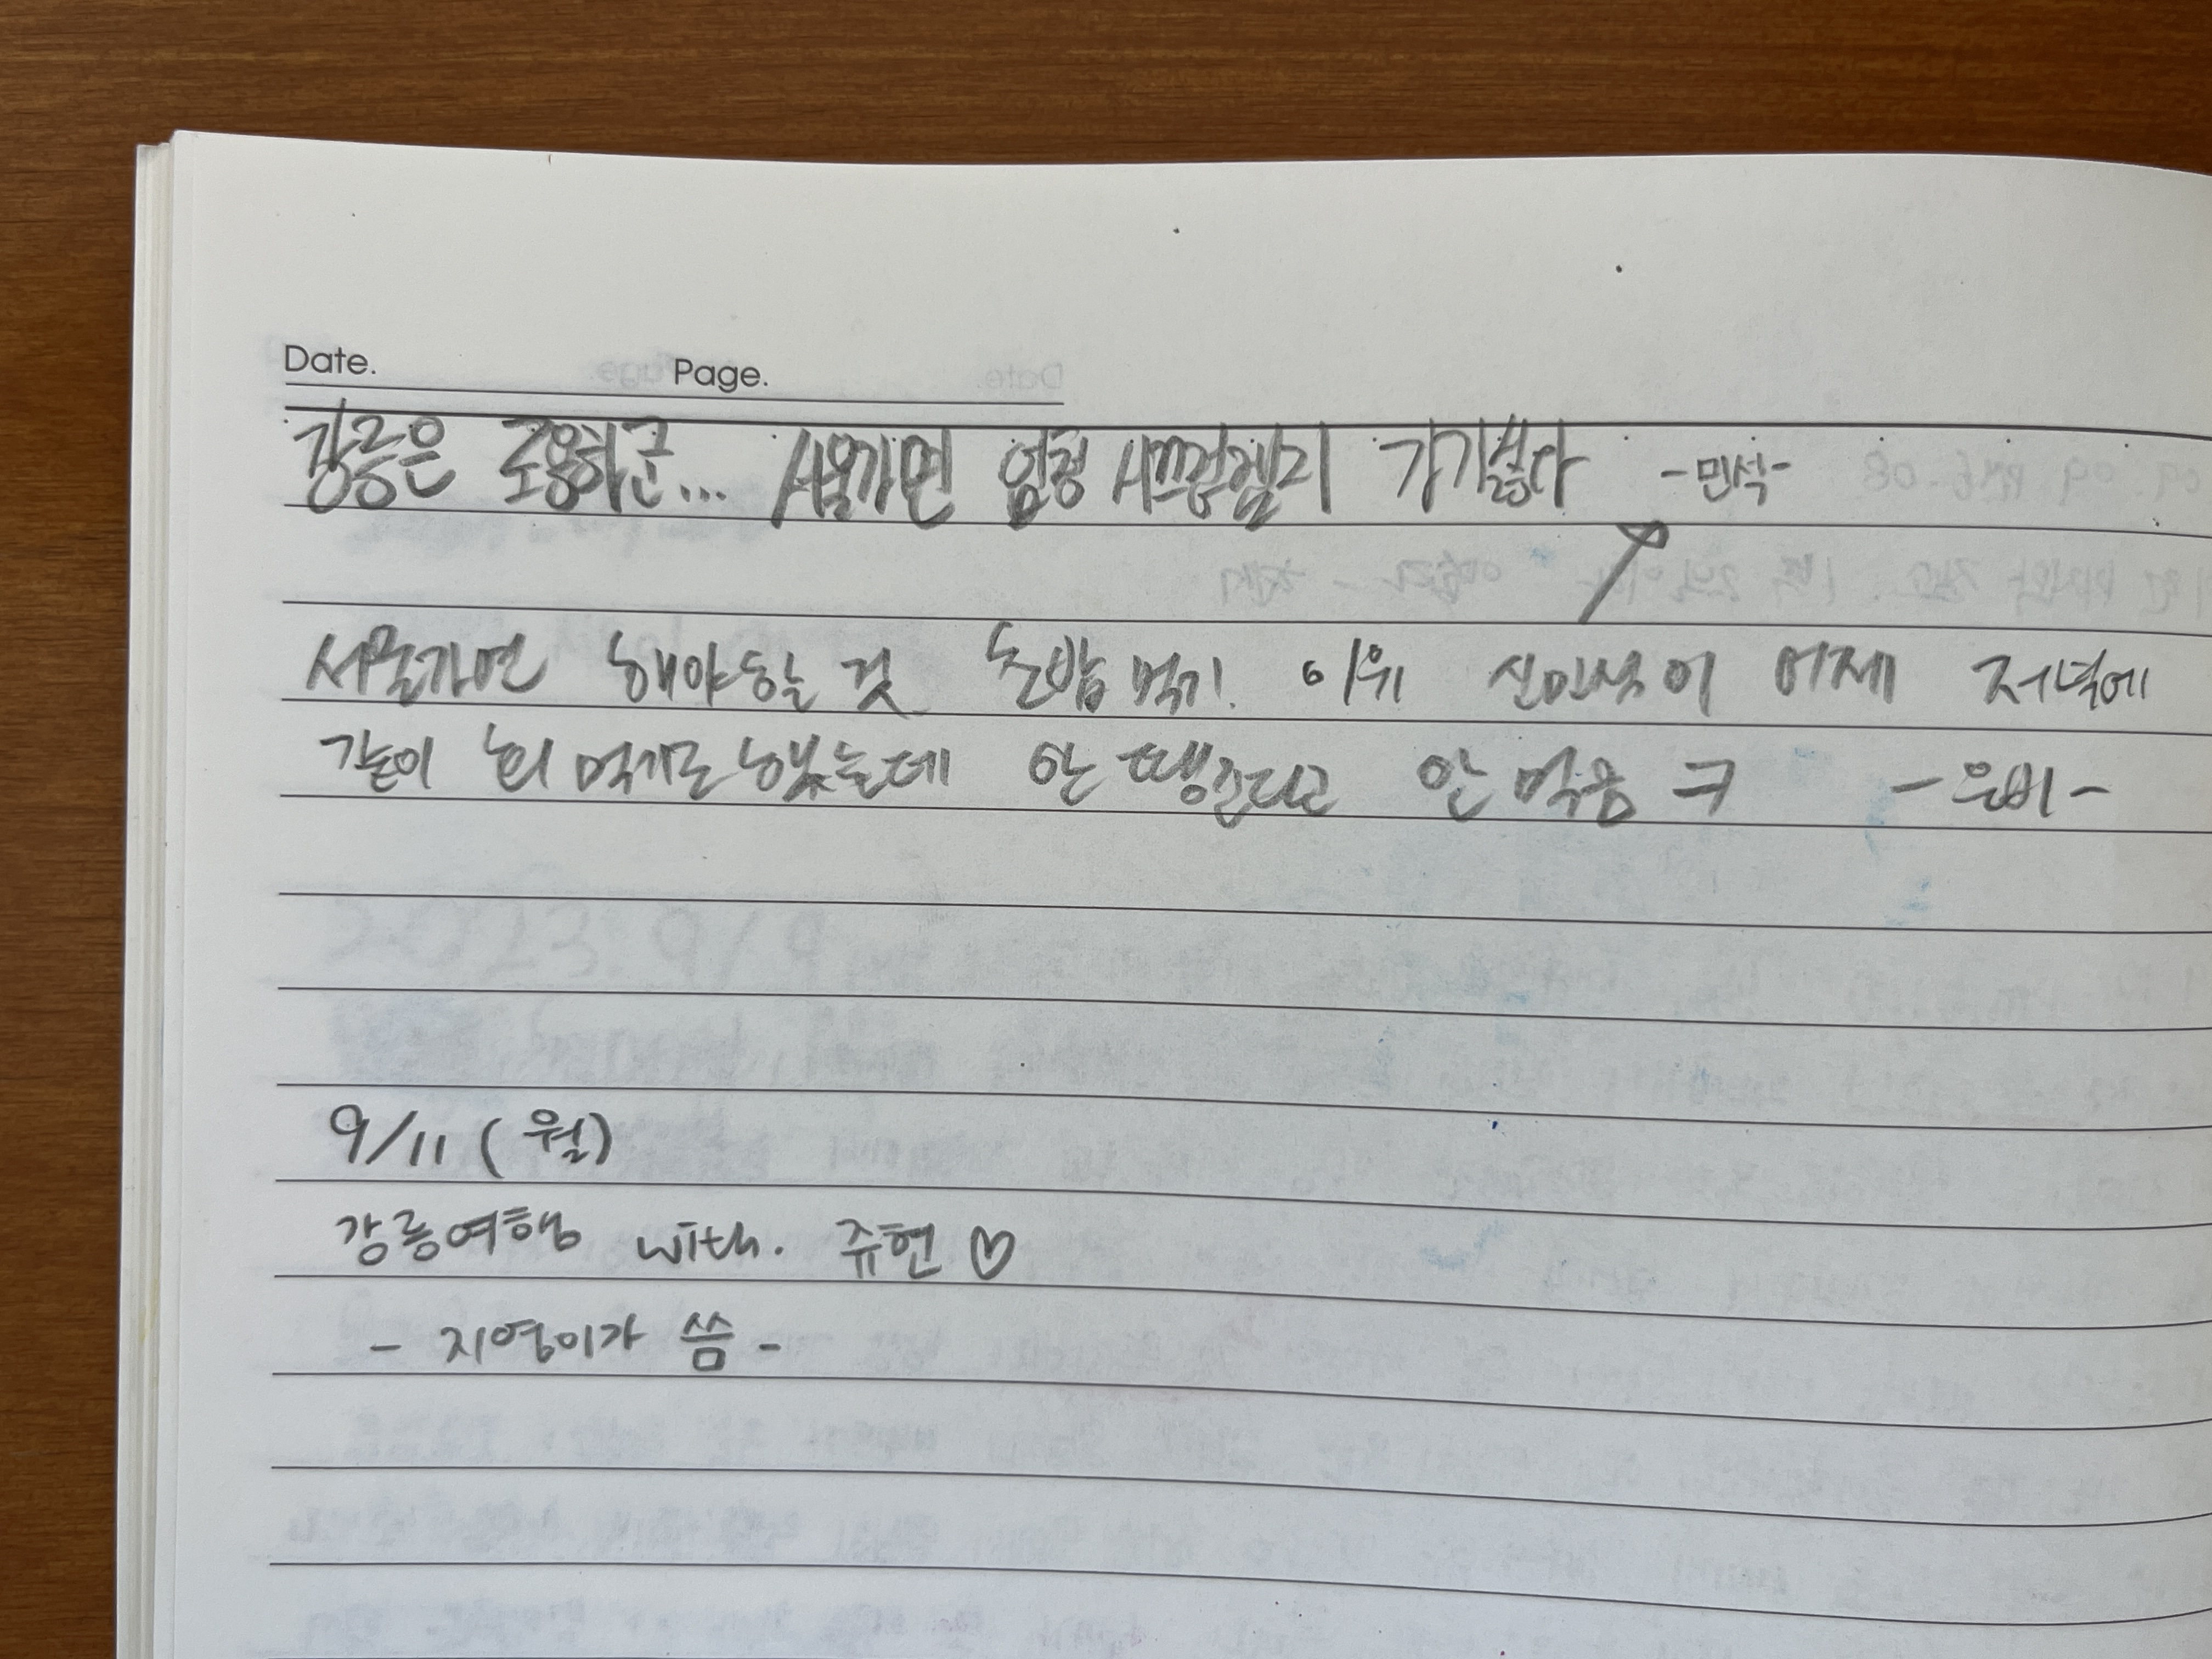 Date. Page.
강릉은 조용하군... 서울가면 엄청 시끄럽겠지 가기싫다 -민석-
서울가면 해야할 것 논밥 먹기! 이위 신민석이 어제 저녁에
같이 회 먹기로 했는데 안 땡긴다고 안 먹음 ㅋ -은비-
9/11 (월)
강릉여행 with. 쥬현 ♡
- 지영이가 씀 -